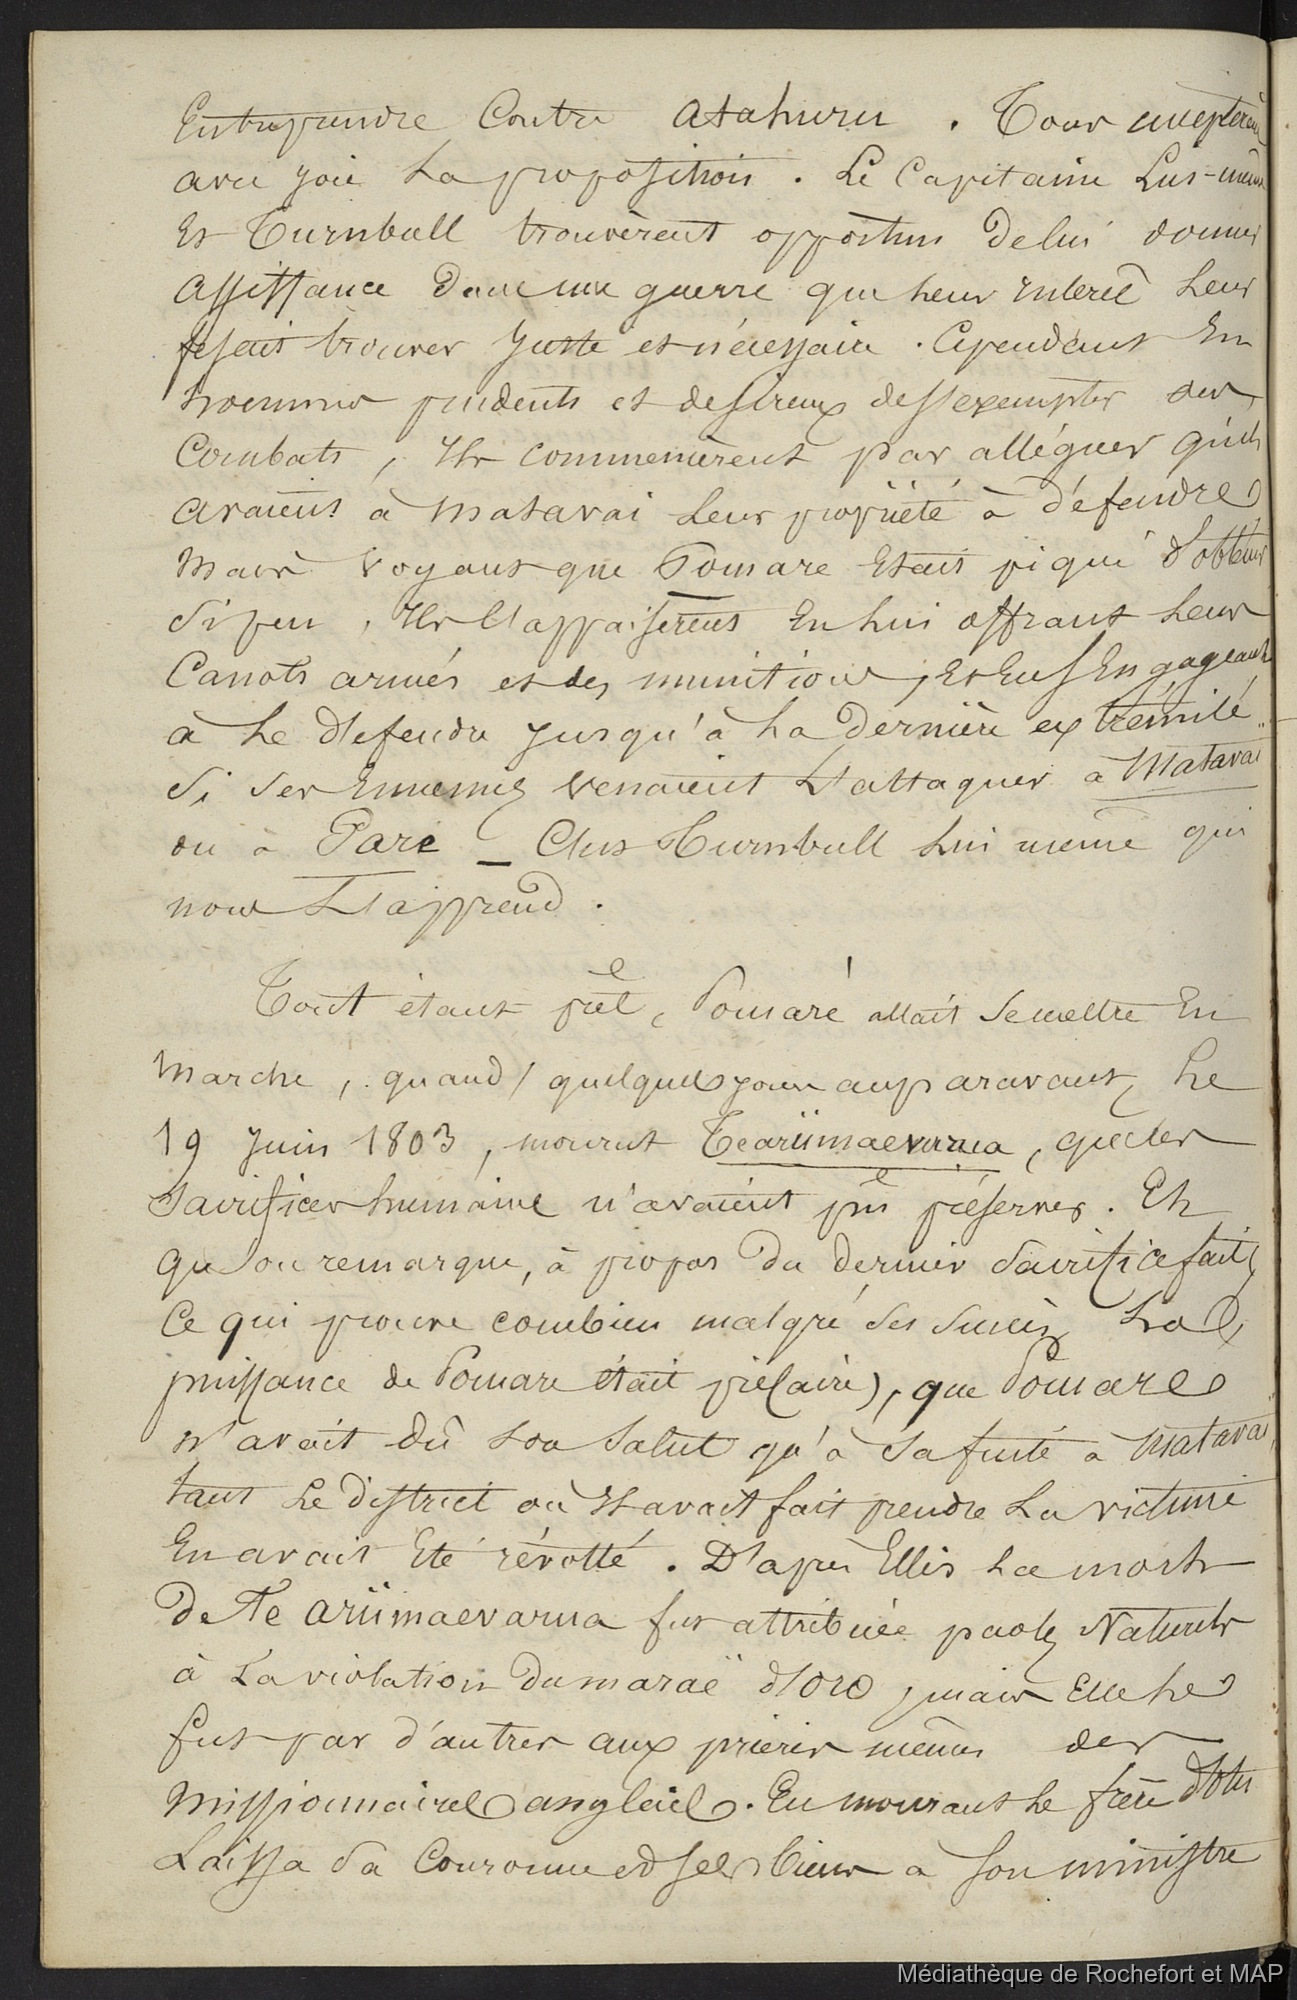 Entreprendre Contre Atahuru . Tous acceptèrent
avec joie la proposition . Le Capitaine Lui-même
Et Turnbull trouvèrent opportun de lui donner
assistance dans une guerre que leur intérêt leur
fesait trouver juste et nécessaire . Cependant En
hommes prudents et desireux de s'exempter des
Combats , Ils commencèrent par alléguer qu'ils
avaient à Matavai leur propriété à défendre
Mais voyant que Pomare Etait piqué d'obtenir
si peu , Ils l'appaisèrent En lui offrant leurs
Canots armés et des munitions , Et En s'Engageant
à le défendre jusqu'à la dernière extrémité
si ses Ennemis venaient l'attaquer à Matavai
ou à Pare _ C'est Turnbull lui même qui
nous L'apprend .
Tout étant prêt , Pomaré allait se mettre En
Marche , quand / quelques jours auparavant, le
19 Juin 1803 , mourut Teariimaevarua , que les
Sacrifices humains n'avaient pu préserver . Et
qu'on remarque, à propos du dernier Sacrifice fait,
(Ce qui prouve combien malgré ses succès la
puissance de Pomare était précaire), que Pomare
n'avait dû son Salut qu'à sa fuite à Matavai,
tant le district où Il avait fait prendre la victime
En avait Eté révolté . D'après Ellis la mort
de Te Ariimaevarua fut attribuée par les Naturels
à la violation du maraë d'Oro , mais Elle le
fut par d'autres aux prières mêmes des
Missionnaires anglais . En mourant le frère d'Otu
Laissa sa Couronne et ses biens à son ministre
Médiathèque de Rochefort et MAP